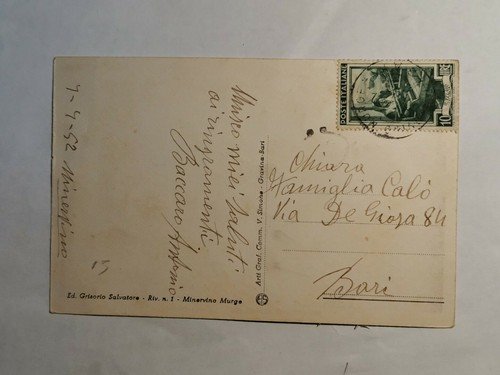 7-4-52 Minervino
Unisco miei saluti
ai ringraziamenti
Baccaro Antonio
15
Ed. Grisorio Salvatore - Riv. n. 1 - Minervino Murge
Arti Graf. Comm. V. Simone - Gravina-Bari
POSTE ITALIANE
10
Chiara
Famiglia Calò
Via De Giosa 84
Bari